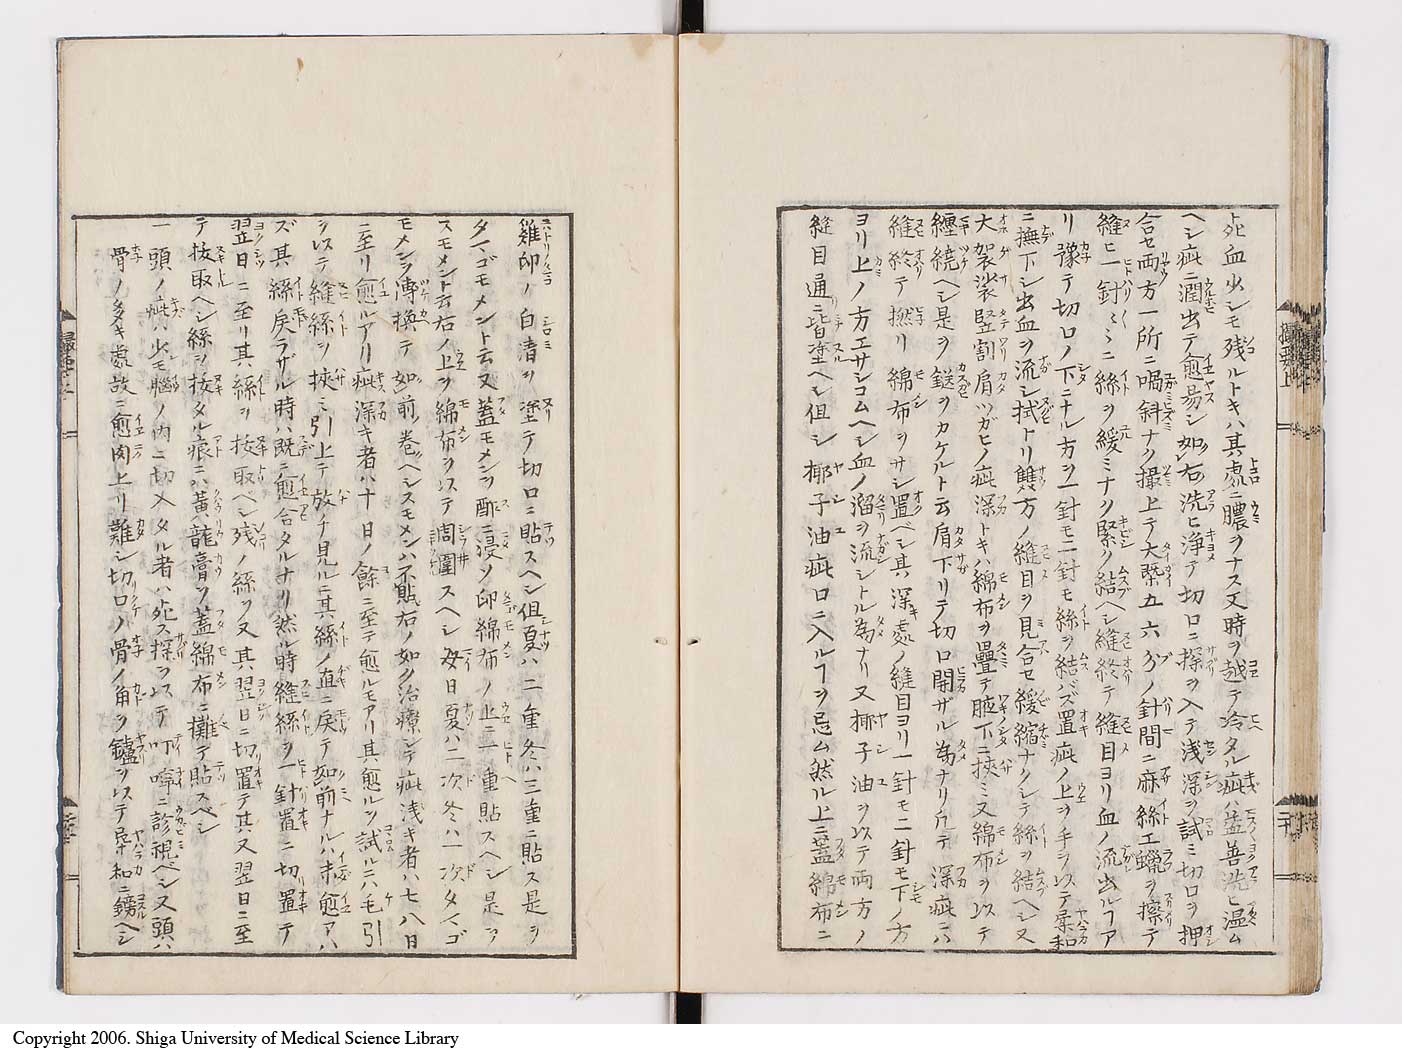 死血少シモ残ルトキハ其處ニ膿ヲナス又時ヲ越テ冷タル疵ハ益善洗ヒ温ム
ヘシ疵ニ潤出テ愈易シ如右洗ヒ浄テ切口ニ探ヲ入テ浅深ヲ試ミ切口ヲ押
合セ両方一所ニ喎斜ナク撮上テ大槩五六分ノ針間ニ麻絲エ蠟ヲ擦テ
縫ヒ一針〳〵ニ絲ヲ緩ミナク緊ク結ヘシ縫終テ縫目ヨリ血ノ流出ルフア
リ豫テ切口ノ下ニナル方ヲ一針モ二針モ絲ヲ結バズ置疵ノ上ヲ手ヲ以テ柔和
ニ撫下シ出血ヲ流シ拭トリ雙方ノ縫目ヲ見合セ緩縮ナクシテ絲ヲ結ヘシ又
大袈裟竪割肩ツガヒノ疵深トキハ綿布ヲ疊テ腋下ニ挾ミ又綿布ヲ以テ
纏繞ヘシ是ヲ鎹ヲカケルト云肩下リテ切口開ザル為ナリ凡テ深疵ニハ
縫終テ撚リ綿布ヲサシ置ベシ其深キ處ノ縫目ヨリ一針モ二針モ下ノ方
ヨリ上ノ方エサシコムヘシ血ノ溜ヲ流シトル為ナリ又椰子油ヲ以テ両方ノ
縫目通ニ皆塗ヘシ但シ椰子油疵口ニ入ルフヲ忌ム然ル上ニ蓋綿布ニ
雞卵ノ白清ヲ塗テ切口ニ貼スヘシ但夏ハ二重冬ハ三重ニ貼ス是ヲ
タマゴモメント云又蓋モメンヲ酢ニ浸ソ卵綿布ノ上ニ一重貼スヘシ是ヲ
スモメント云右ノ上ヲ綿布ヲ以テ周圍スヘシ毎日夏ハ二次冬ハ一次タマゴ
モメンヲ漙換テ如前巻ヘシスモメンハ不貼右ノ如ク治療シテ疵浅キ者ハ七八日
ニ至リ愈ルアリ疵深キ者ハ十日ノ餘ニ至テ愈ルモアリ其愈ルヲ試ルニハ毛引
ヲ以テ縫絲ヲ挾ミ引上テ放チ見ルニ其絲ノ直ニ戻テ如前ナルハ未愈アハ
ズ其絲戻ラザル時ハ既ニ愈合タルナリ然ル時縫絲ヲ一針置ニ切置テ
翌日ニ至リ其絲ヲ抜取ベシ残ノ絲ヲ又其翌日ニ切置テ其又翌日ニ至
テ抜取ヘシ絲ヲ抜タル痕ニハ黄龍膏ヲ蓋綿布ニ攤テ貼スベシ
一頭ノ疵ハ少モ腦ノ内ニ切入タル者ハ死ス探ヲ以テ叮嚀ニ診視ベシ又頭ハ
骨ノ多キ處故ニ愈肉上リ難シ切口ノ骨ノ角ヲ鑢ヲ以テ柔和ニ鎊ヘシ
Copyright 2006. Shiga University of Medical Science Library